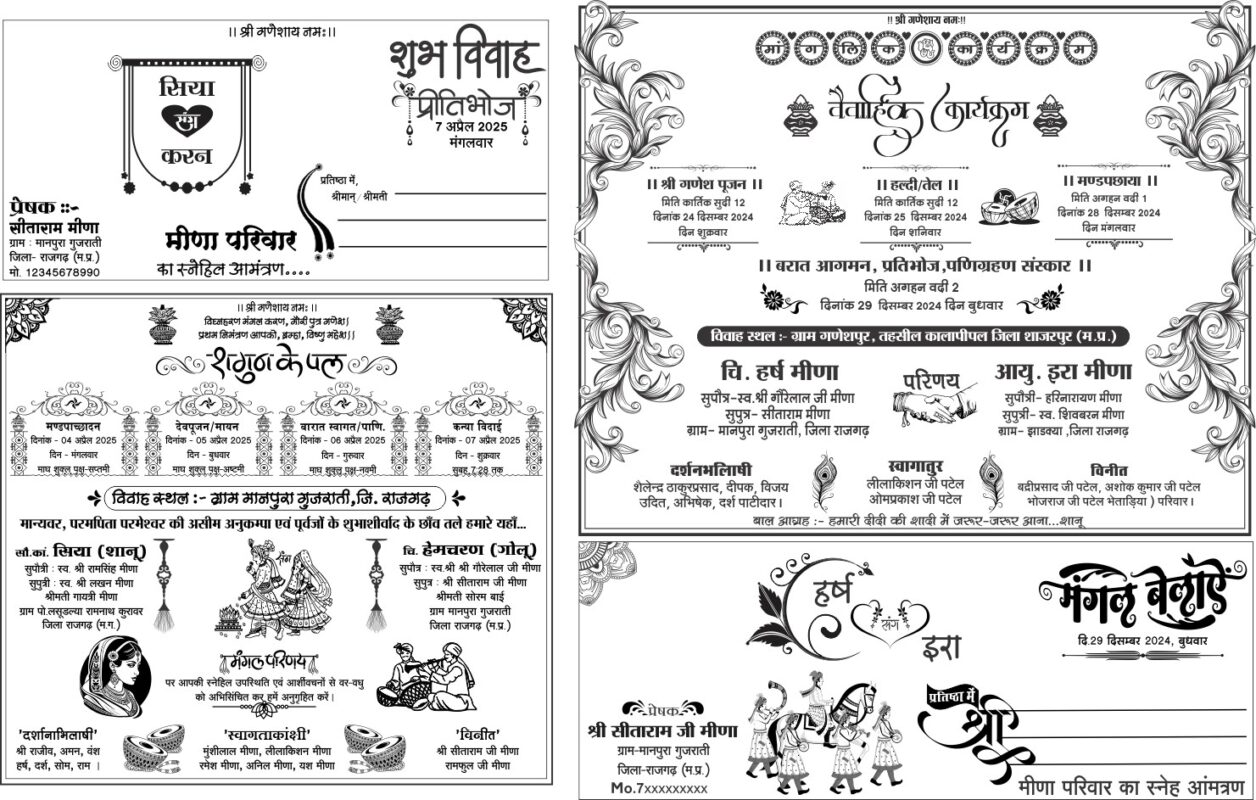 ।। श्री गणेशाय नमः।।
सिया
संग
करन
शुभ विवाह
प्रीतिभोज
7 अप्रैल 2025
मंगलवार
प्रतिष्ठा में,
श्रीमान्/श्रीमती
प्रेषक ::-
सीताराम मीणा
ग्राम : मानपुरा गुजराती
जिला- राजगढ़ (म.प्र.)
मो. 12345678990
मीणा परिवार
का स्नेहिल आमंत्रण....
।। श्री गणेशाय नमः ।।
विघ्नहरण मंगल करण, गौरी पुत्र गणेश।
प्रथम निमंत्रण आपको, ब्रम्हा, विष्णु महेश।।
शगुन के पल
मण्डपाच्छादन
दिनांक - 04 अप्रेल 2025
दिन - मंगलवार
माघ शुक्ल पक्ष-सप्तमी
देवपूजन/मायन
दिनांक - 05 अप्रेल 2025
दिन - बुधवार
माघ शुक्ल पक्ष-अष्टमी
बारात स्वागत/पाणि.
दिनांक - 06 अप्रेल 2025
दिन - गुरुवार
माघ शुक्ल पक्ष-नवमी
कन्या विदाई
दिनांक - 07 अप्रेल 2025
दिन - शुक्रवार
सुबह 7.28 तक
विवाह स्थल :- ग्राम मानपुरा गुजराती, जि. राजगढ़
मान्यवर, परमपिता परमेश्वर की असीम अनुकम्पा एवं पूर्वजों के शुभाशीर्वाद के छाँव तले हमारे यहाँ...
सौ.कां. सिया (शानू)
सुपौत्री : स्व. श्री रामसिंह मीणा
सुपुत्री : स्व. श्री लखन मीणा
श्रीमती गायत्री मीणा
ग्राम पो.लसूडल्या रामनाथ कुरावर
जिला राजगढ़ (म.ग.)
संग
चि. हेमचरण (गोलू)
सुपौत्र : स्व.श्री श्री गौरेलाल जी मीणा
सुपुत्र : श्री सीताराम जी मीणा
श्रीमती सोरम बाई
ग्राम मानपुरा गुजराती
जिला राजगढ़ (म.प्र.)
मंगल परिणय
पर आपकी स्नेहिल उपस्थिति एवं आर्शीवचनों से वर-वधु
को अभिसिंचित कर हमें अनुगृहित करें।
'दर्शनाभिलाषी'
श्री राजीव, अमन, वंश
हर्ष, दर्श, सोम, राम ।
'स्वागताकांक्षी'
मुंशीलाल मीणा, लीलाकिशन मीणा
रमेश मीणा, अनिल मीणा, यश मीणा
'विनीत'
श्री सीताराम जी मीणा
रामफुल जी मीणा
!! श्री गणेशाय नमः!!
मां ग लि क का र्य क्र म
वैवाहिक कार्यक्रम
।। श्री गणेश पूजन ।।
मिति कार्तिक सुदी 12
दिनांक 24 दिसम्बर 2024
दिन शुक्रवार
।। हल्दी/तेल ।।
मिति कार्तिक सुदी 12
दिनांक 25 दिसम्बर 2024
दिन शनिवार
।। मण्डपछाया ।।
मिति अगहन वदी 1
दिनांक 28 दिसम्बर 2024
दिन मंगलवार
।। बरात आगमन, प्रतिभोज,पणिग्रहण संस्कार ।।
मिति अगहन वदी 2
दिनांक 29 दिसम्बर 2024 दिन बुधवार
विवाह स्थल :- ग्राम गणेशपुर, तहसील कालापीपल जिला शाजरपुर (म.प्र.)
चि. हर्ष मीणा
सुपौत्र-स्व.श्री गौरेलाल जी मीणा
सुपुत्र- सीताराम मीणा
ग्राम- मानपुरा गुजराती, जिला राजगढ़
परिणय
आयु. इरा मीणा
सुपौत्री- हरिनारायण मीणा
सुपुत्री- स्व. शिवबरन मीणा
ग्राम- झाडक्या ,जिला राजगढ़
दर्शनभलिाषी
शैलेन्द्र ठाकुरप्रसाद, दीपक, विजय
उदित, अभिषेक, दर्श पाटीदार।
स्वागातुर
लीलाकिशन जी पटेल
ओमप्रकाश जी पटेल
विनीत
बद्रीप्रसाद जी पटेल, अशोक कुमार जी पटेल
भोजराज जी पटेल भेताड़िया ) परिवार।
बाल आग्रह :- हमारी दीदी की शादी में जरूर-जरूर आना...शानू
हर्ष
संग
इरा
मंगल बेलाऐं
दि.29 दिसम्बर 2024, बुधवार
प्रेषक
श्री सीताराम जी मीणा
ग्राम-मानपुरा गुजराती
जिला-राजगढ़ (म.प्र.)
Mo.7xxxxxxxxx
प्रतिष्ठा में
श्री
मीणा परिवार का स्नेह आंमत्रण